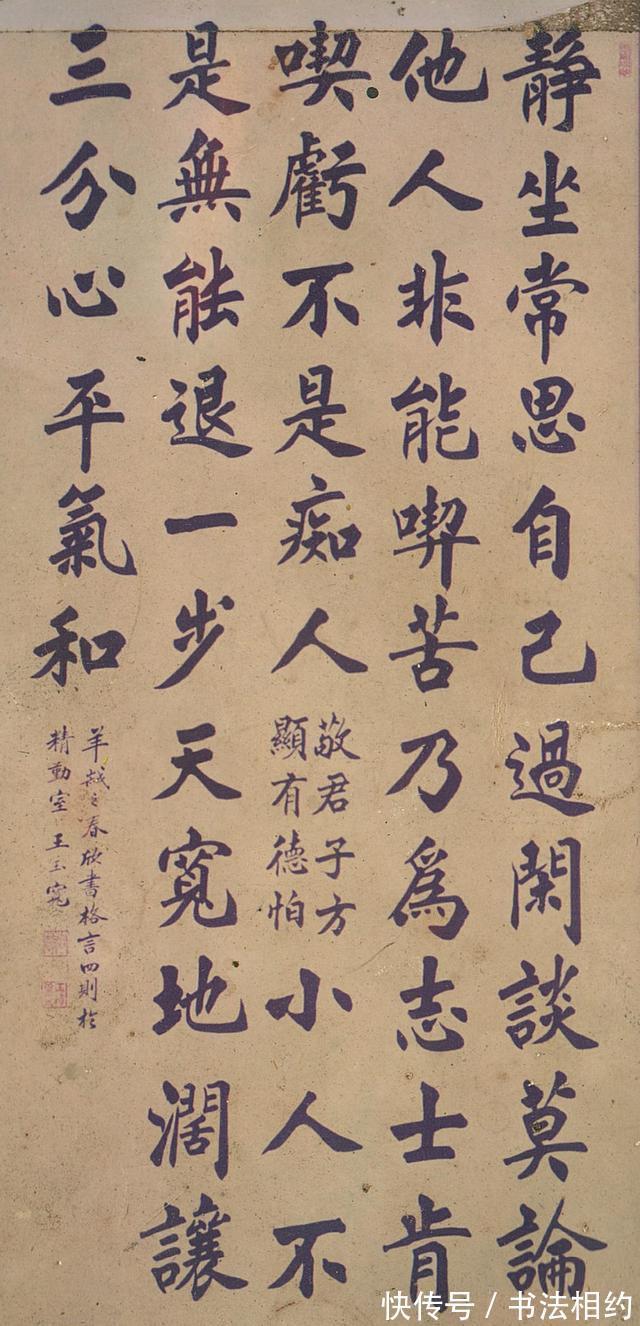 静坐常思自己過閑談莫論
他人非能喫苦乃爲志士肯
喫虧不是痴人
敬君子方
顯有德怕
小人不
是無能退一步天寬地濶讓
三分心平氣和
羊之春欣書格言四則於
精室王
快传号 / 书法相约